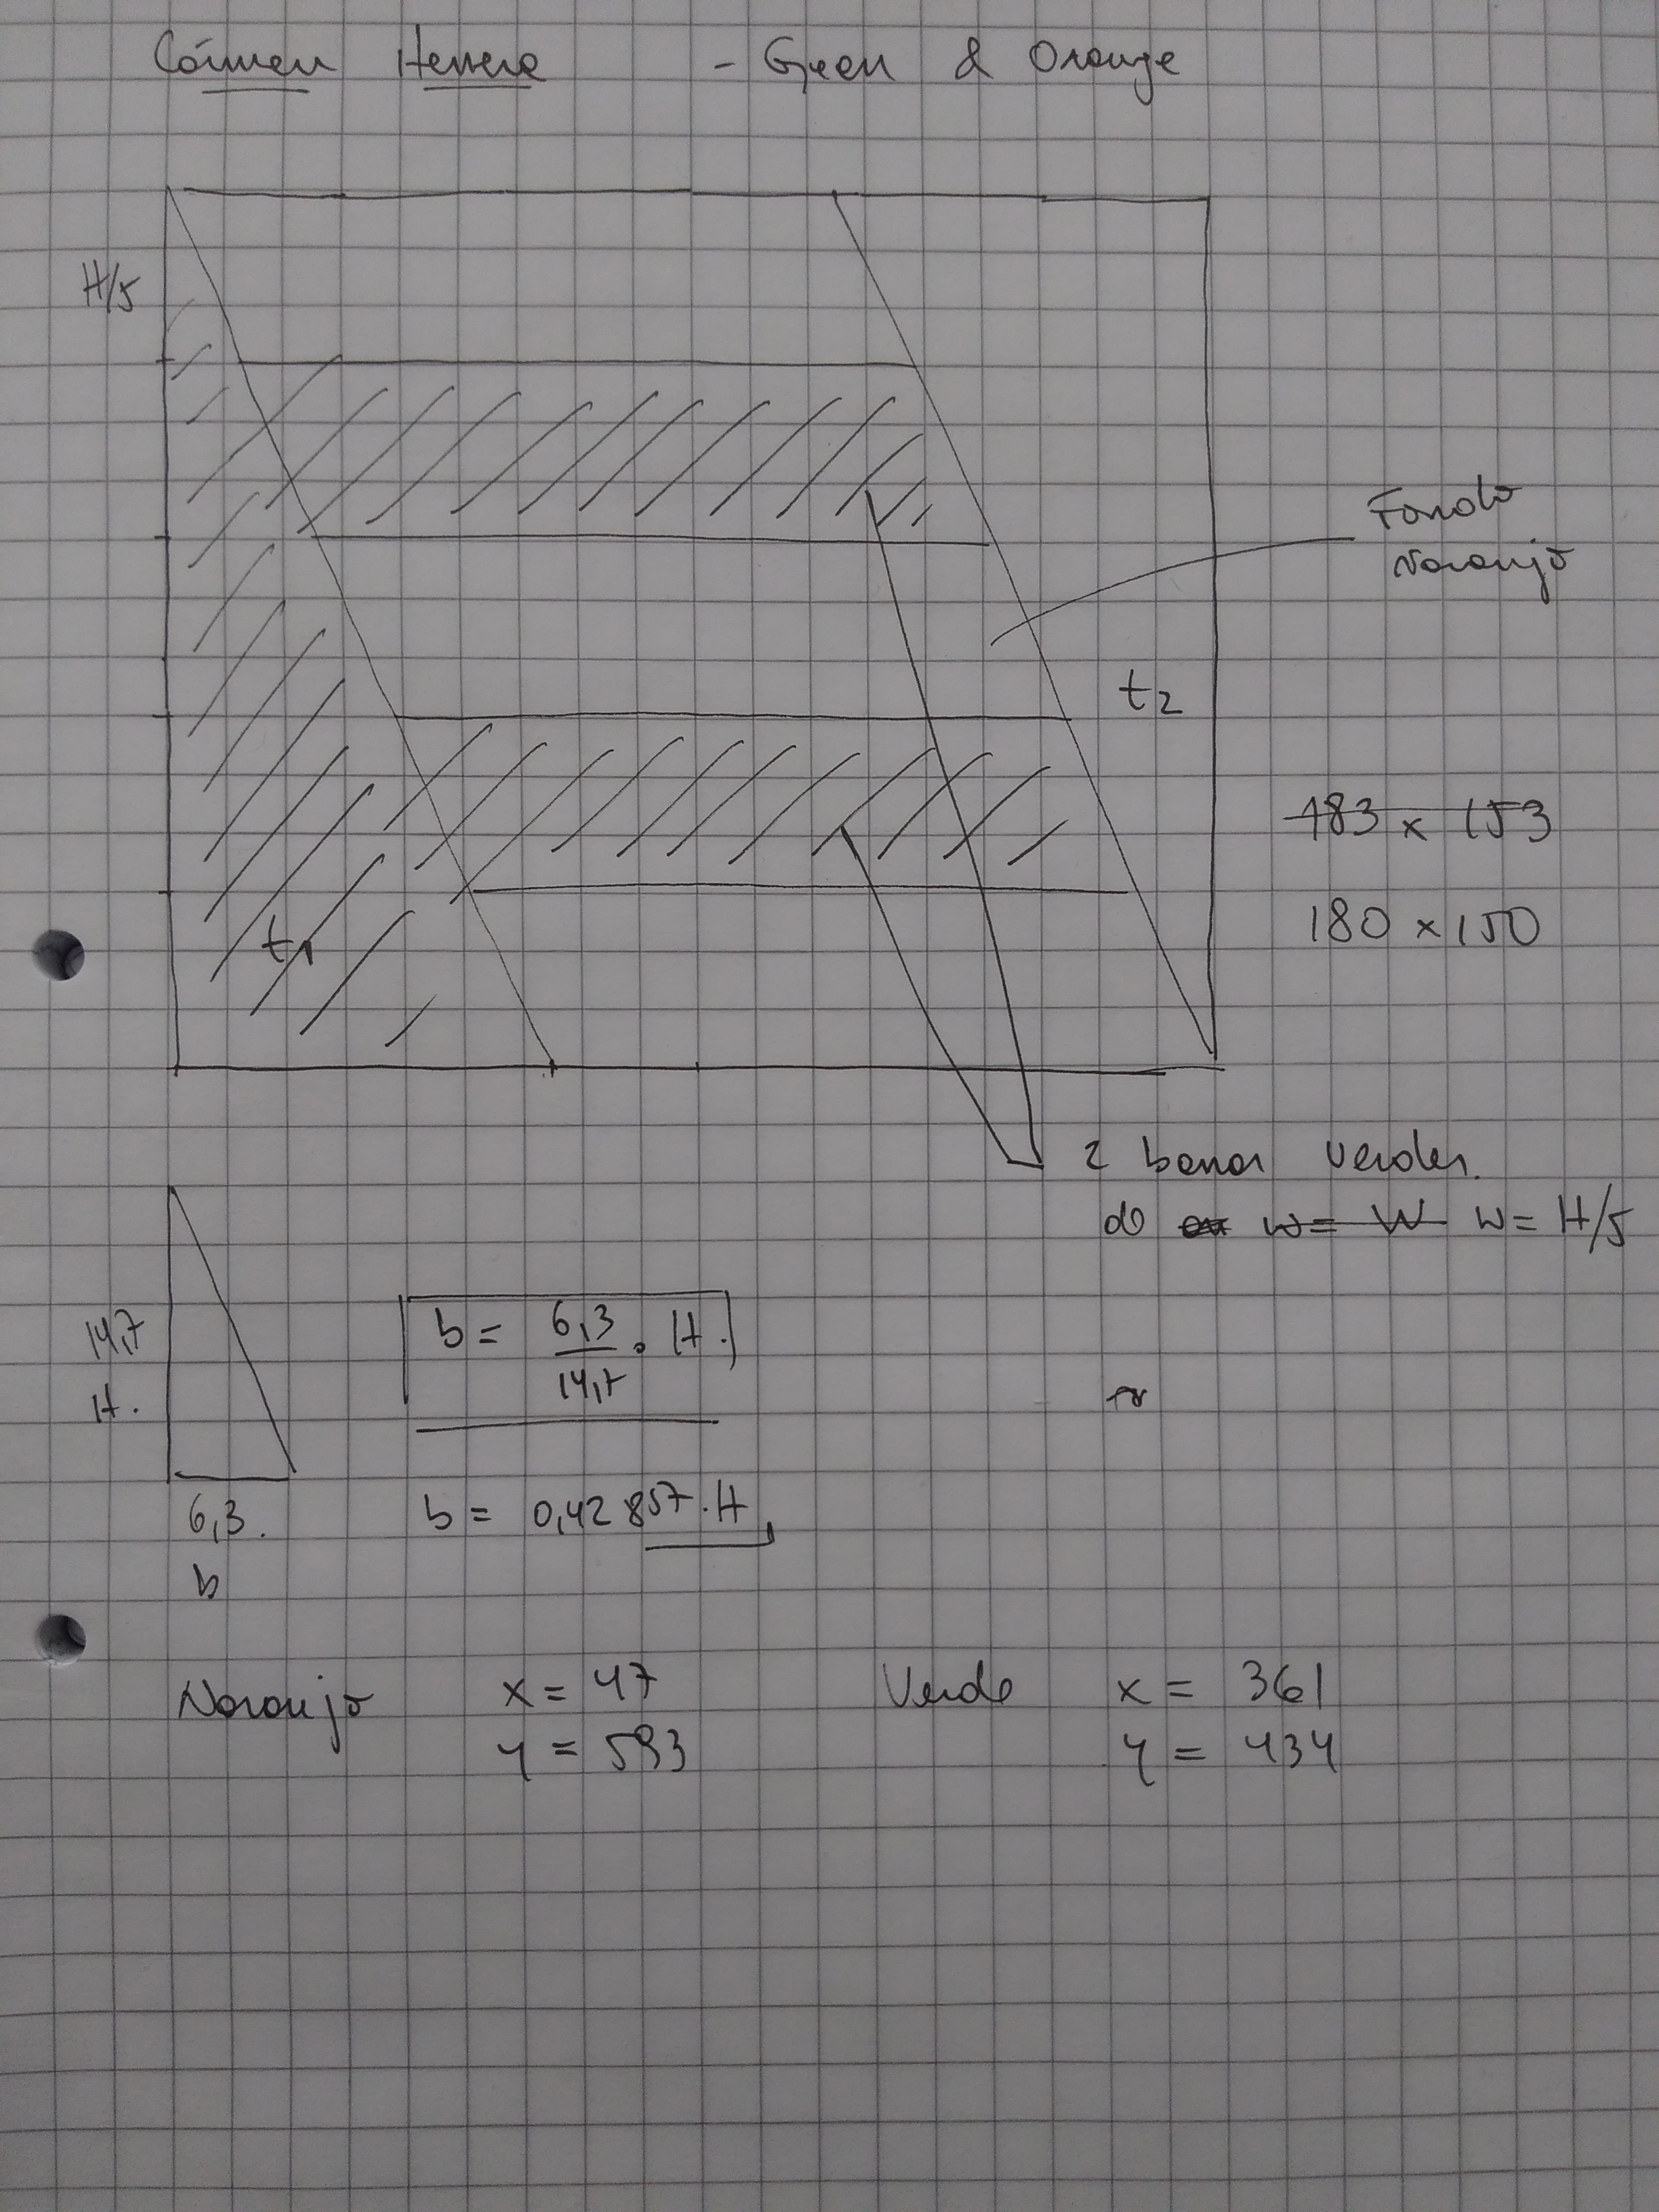 Cármen Herrera - Green & Orange
H/5
Fondo
Naranja
t2
183 x 153
180 x 150
t1
2 barras verdes.
de w = W w = H/5
14,7
H.
b = 6,3 / 14,7 . H.
6,3.
b = 0,42857.H
b
Naranja x = 47 Verde x = 361
y = 593 y = 434